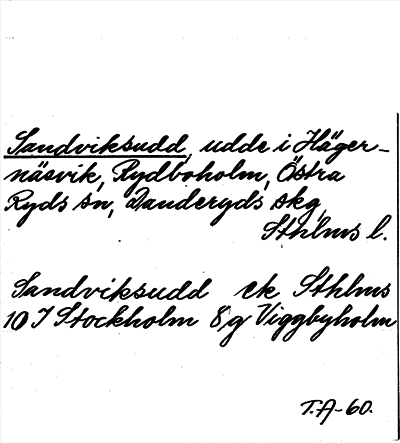 Sandviksudd, udde i Häger-
näsvik, Rydboholm, Östra
Ryds sn, Danderyds skg,
Sthlms l.
Sandviksudd ek Sthlms
10 I Stockholm 8 g Viggbyholm
T.A-60.